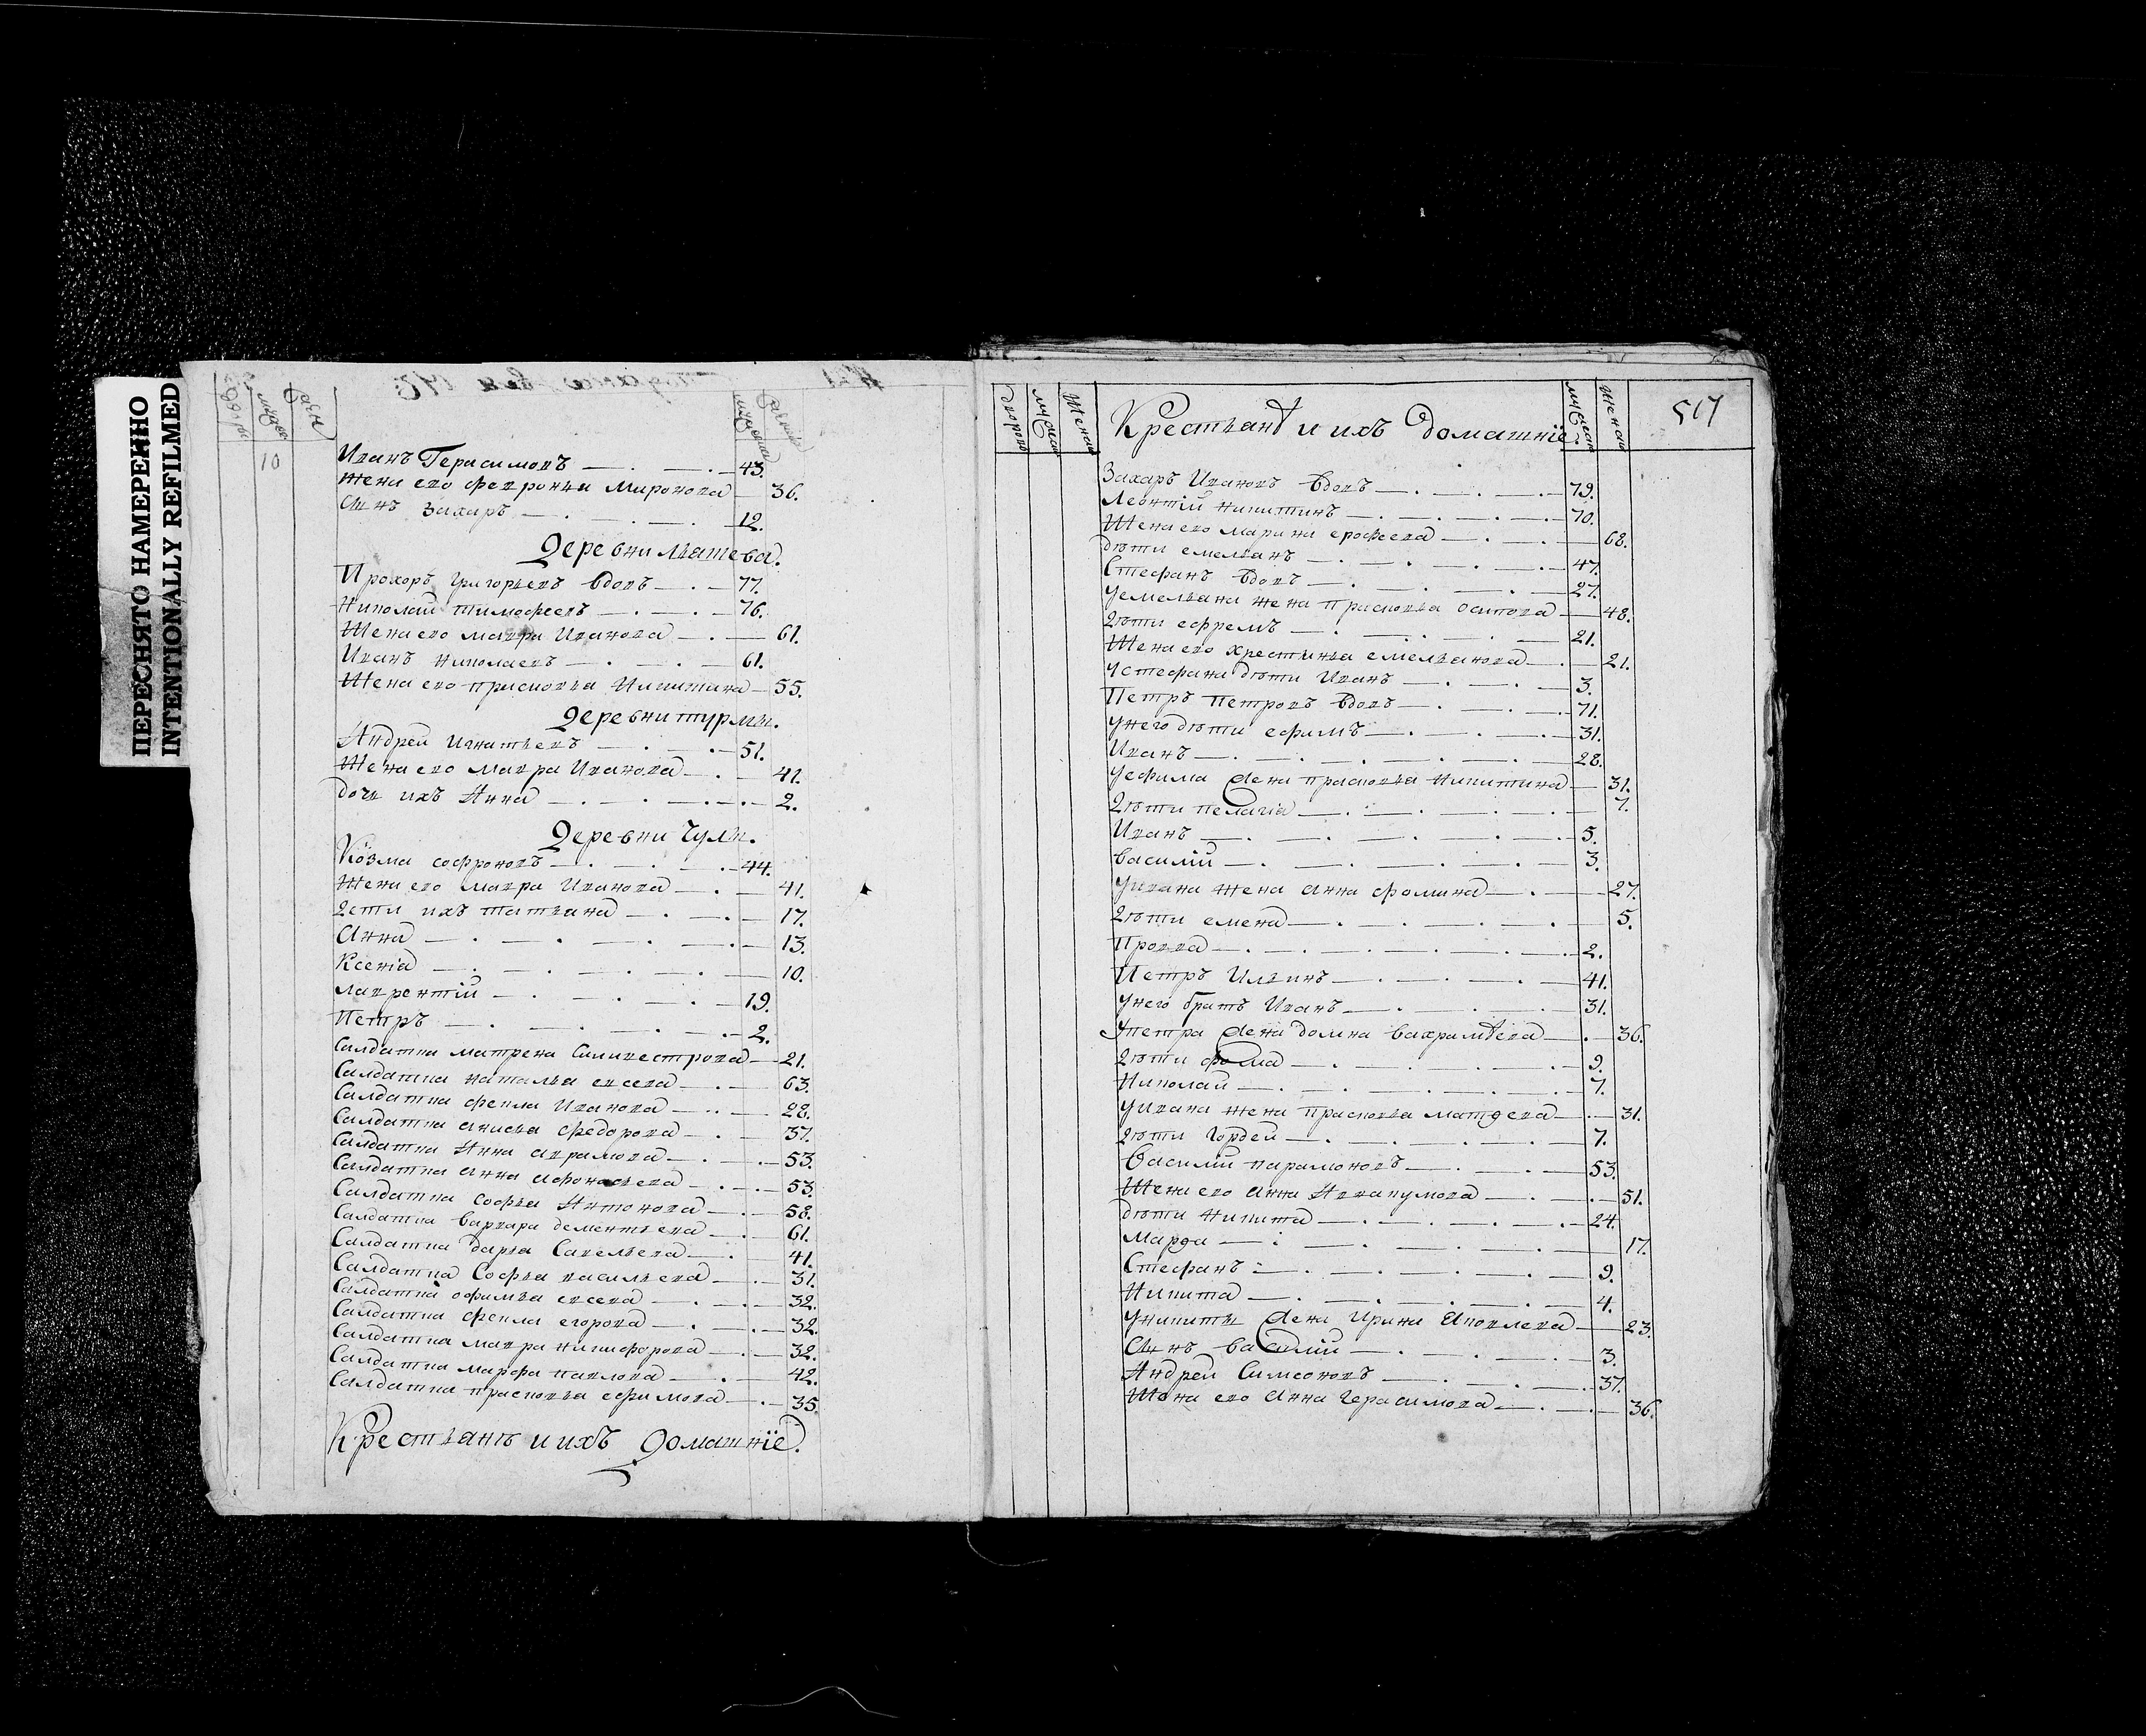 ПЕРЕСНЯТО НАМЕРЕННО
INTENTIONALLY REFILMED
10
Иванъ Герасимовъ 43.
Жена его Февронья Миронова 36.
Сынъ Захаръ 12.
Деревни
Прохоръ Григорьевъ вдовъ 77.
Николай Тимофеевъ 76.
Жена его Мавра Иванова 61.
Иванъ Николаевъ 61.
Жена его Прасковья Никитина 55.
Деревни Турмы.
Андрей Игнатьевъ 51.
Жена его Мавра Иванова 41.
дочь ихъ Анна 2.
Деревни Чулы.
Козма Софроновъ 44.
Жена его Мавра Иванова 41.
Дети ихъ Татьяна 17.
Анна 13.
Ксенїа 10.
Лаврентїй 19.
Петръ 2.
Салдатка Матрена Силивестрова 21.
Салдатка Наталья евсева 63.
Салдатка Фекла Иванова 28.
Салдатка Анисья Федорова 37.
Салдатка Анна Аврамова 53.
Салдатка Анна Афонасьева 53.
Салдатка Софья Антонова 58.
Салдатка Варвара Дементьева 61.
Салдатка Дарья Савельева 41.
Салдатка Софья Васильева 31.
Салдатка офимья евсева 32.
Салдатка Фекла егорова 32.
Салдатка Мавра Никифорова 32.
Салдатка Марфа Павлова 42.
Салдатка Прасковья ефимова 35.
Крестьянѣ и ихъ Домашнїе.
517
Крестьянѣ и ихъ домашнїе.
Захаръ Ивановъ вдовъ 79.
Леонтїй Никитинъ 70.
Жена его Марина ерофеева 68.
дѣти емельянъ 47.
Стефанъ вдовъ 27.
У емельяна жена Прасковья Осипова 48.
Дѣти ефремъ 21.
Жена его Хрестинья емельянова 21.
У Стефана дѣти Иванъ 3.
Петръ Петровъ вдовъ 71.
У него дѣти ефимъ 31.
Иванъ 28.
У ефима жена Прасковья Никитина 31.
Дѣти Пелагїа 7.
Иванъ 5.
Василїй 3.
У Ивана жена Анна Фомина 27.
Дѣти 5.
2.
Петръ Ильинъ 41.
У него братъ Иванъ 31.
У Петра жена Домна Вахрамѣева 36.
Дѣти Фома 9.
Николай 7.
У Ивана жена Прасковья 31.
Дѣти Гордей 7.
Василїй Парамоновъ 53.
Жена его Анна 51.
дѣти Никита 24.
17.
Стефанъ 9.
Никита 4.
У Никиты жена Ирина Яковлева 23.
Сынъ Василїй 3.
Андрей Симеоновъ 37.
Жена его Анна Герасимова 36.